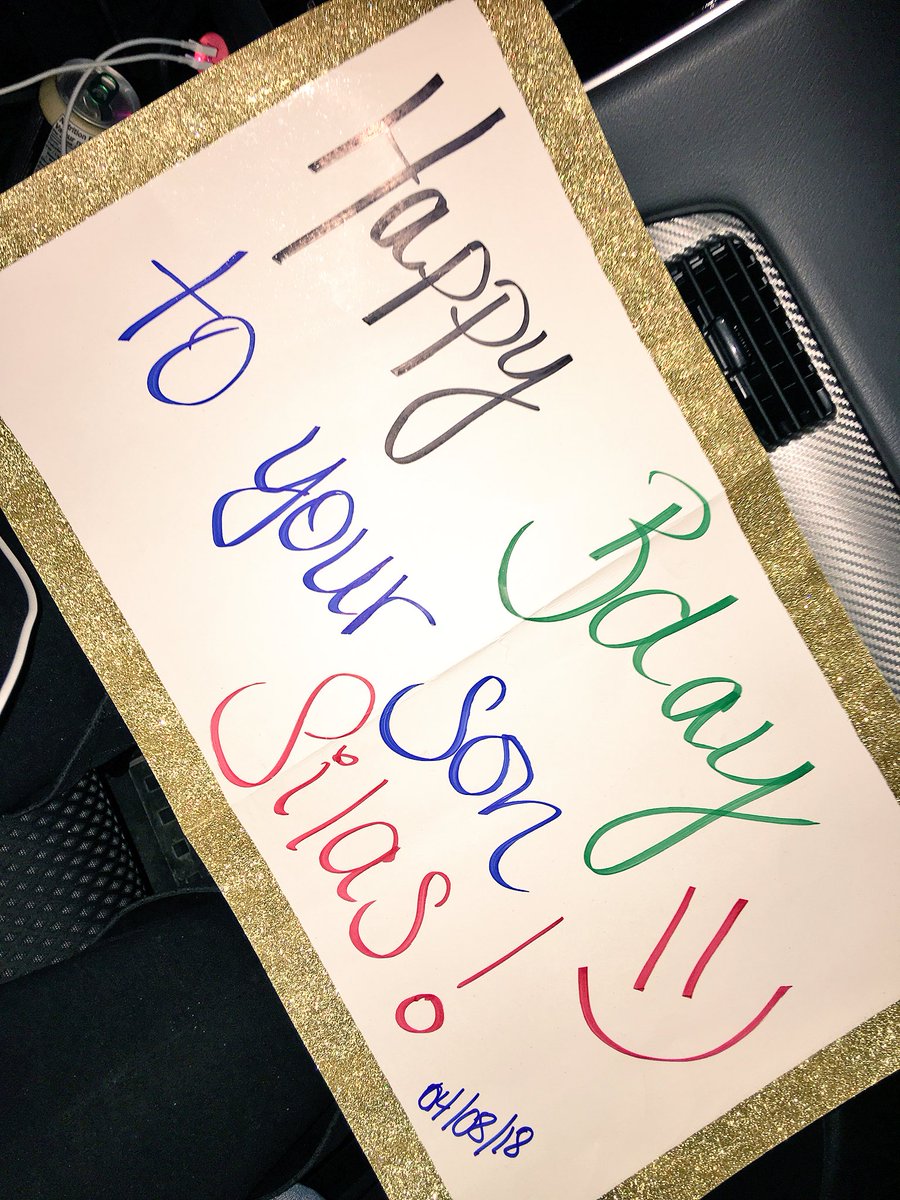 Happy Bday
to your son
Silas!
04/08/18